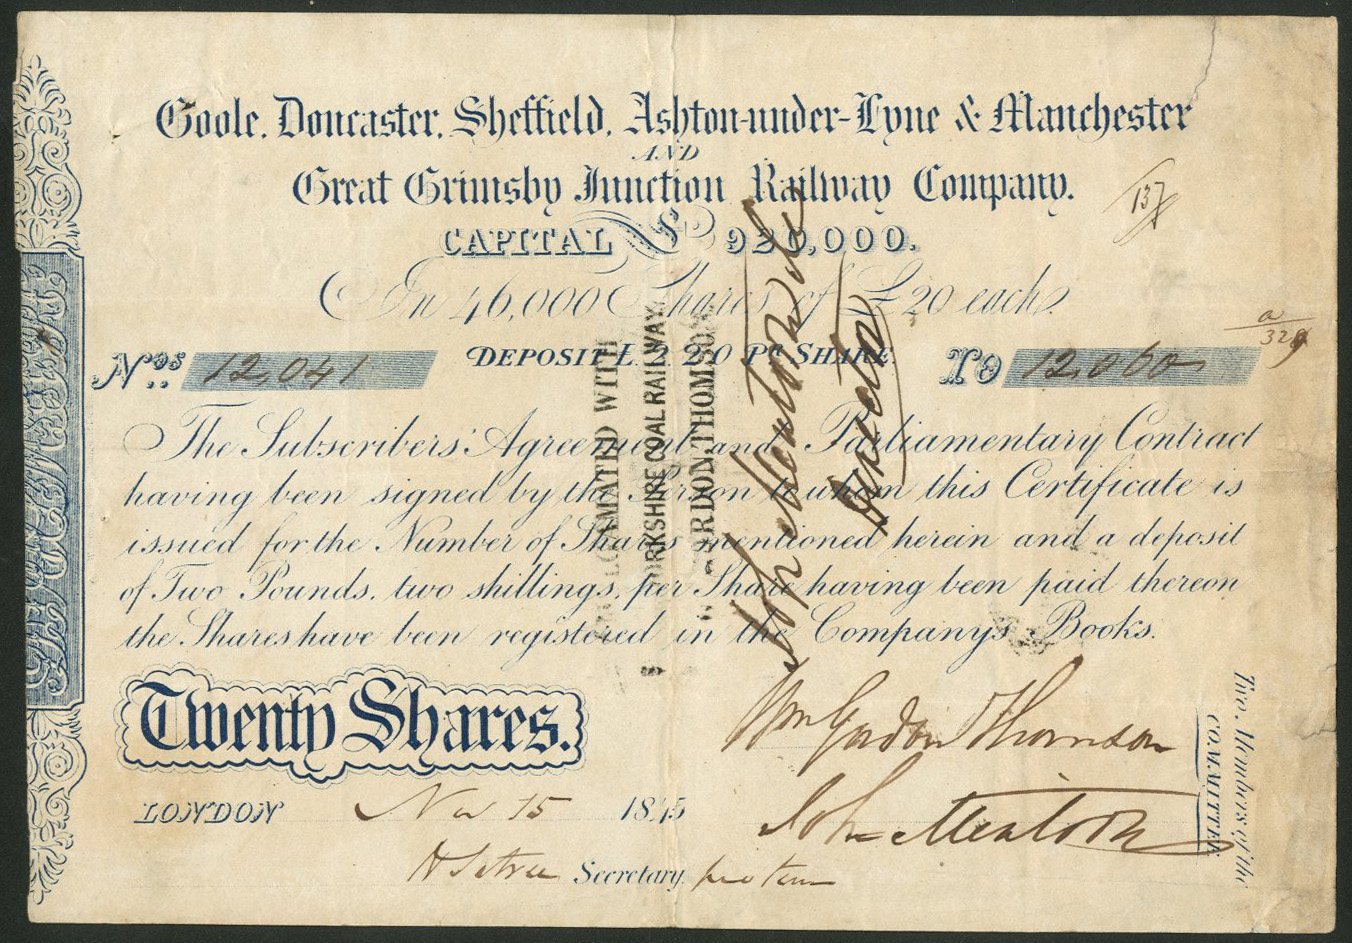 Goole, Doncaster, Sheffield, Ashton-under-Lyne & Manchester
AND
Great Grimsby Junction Railway Company.
137
CAPITAL £ 920,000.
In 46,000 Shares of £20 each.
a
329
Nos.. 12,041 DEPOSIT £2 2 0 Pr SHARE To 12,060
The Subscribers' Agreement and Parliamentary Contract
having been signed by the Person to whom this Certificate is
issued for the Number of Shares mentioned herein and a deposit
of Two Pounds, two shillings, per Share having been paid thereon
the Shares have been registered in the Company's Books.
WITH
YORKSHIRE COAL RAILWAY
GORDON, THOMSON
Director
Twenty Shares.
Wm Gordon Thomson
John
Two, Members of the
COMMITTEE
LONDON Nov 15 1845
Secretary pro tem